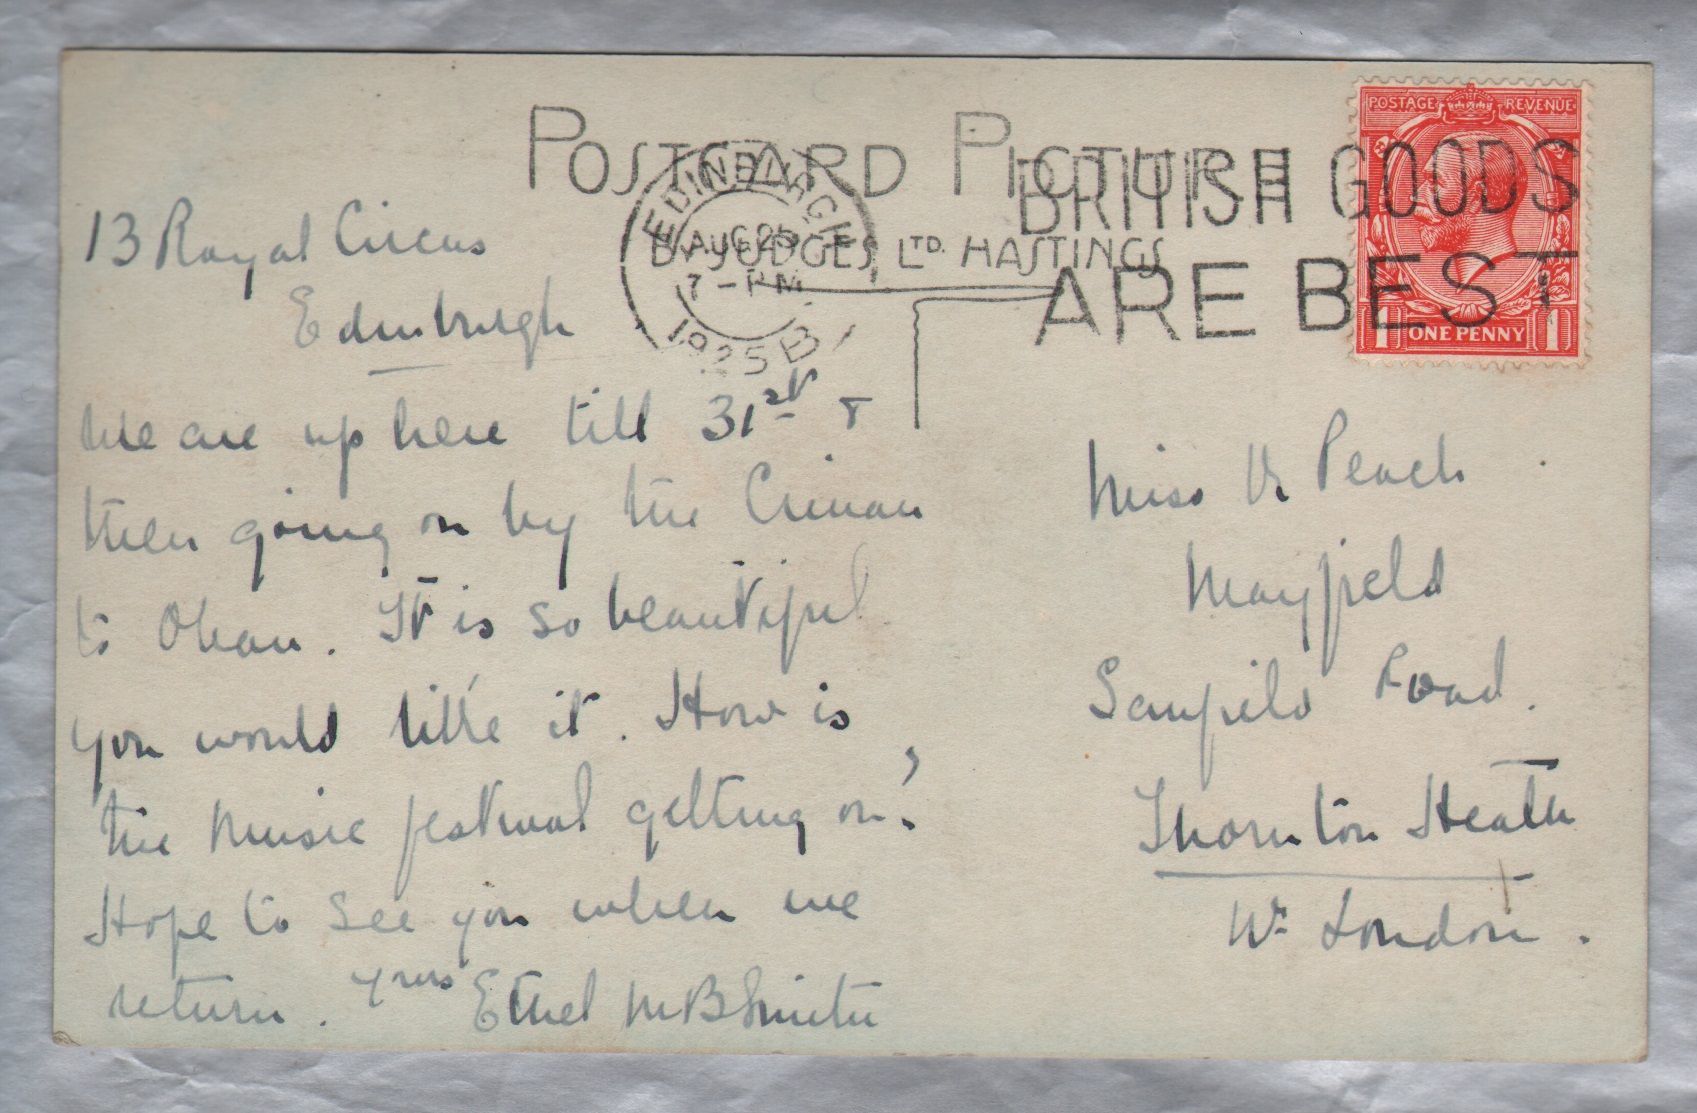 POSTCARD PICTURE
BY JUDGES, LTD. HASTINGS
EDINBURGH
7 - PM
AUG 25
1925
B
BRITISH GOODS
ARE BEST
POSTAGE REVENUE
1 ONE PENNY 1
13 Royal Circus
Edinburgh
We are up here till 31st &
then going on by the Crinan
to Oban. It is so beautiful
you would like it. How is
the Music festival getting on?
Hope to see you when we
return. Yrs Ethel M B Smith
Miss Peach
Mayfield
Road.
Thornton Heath
Nr London.